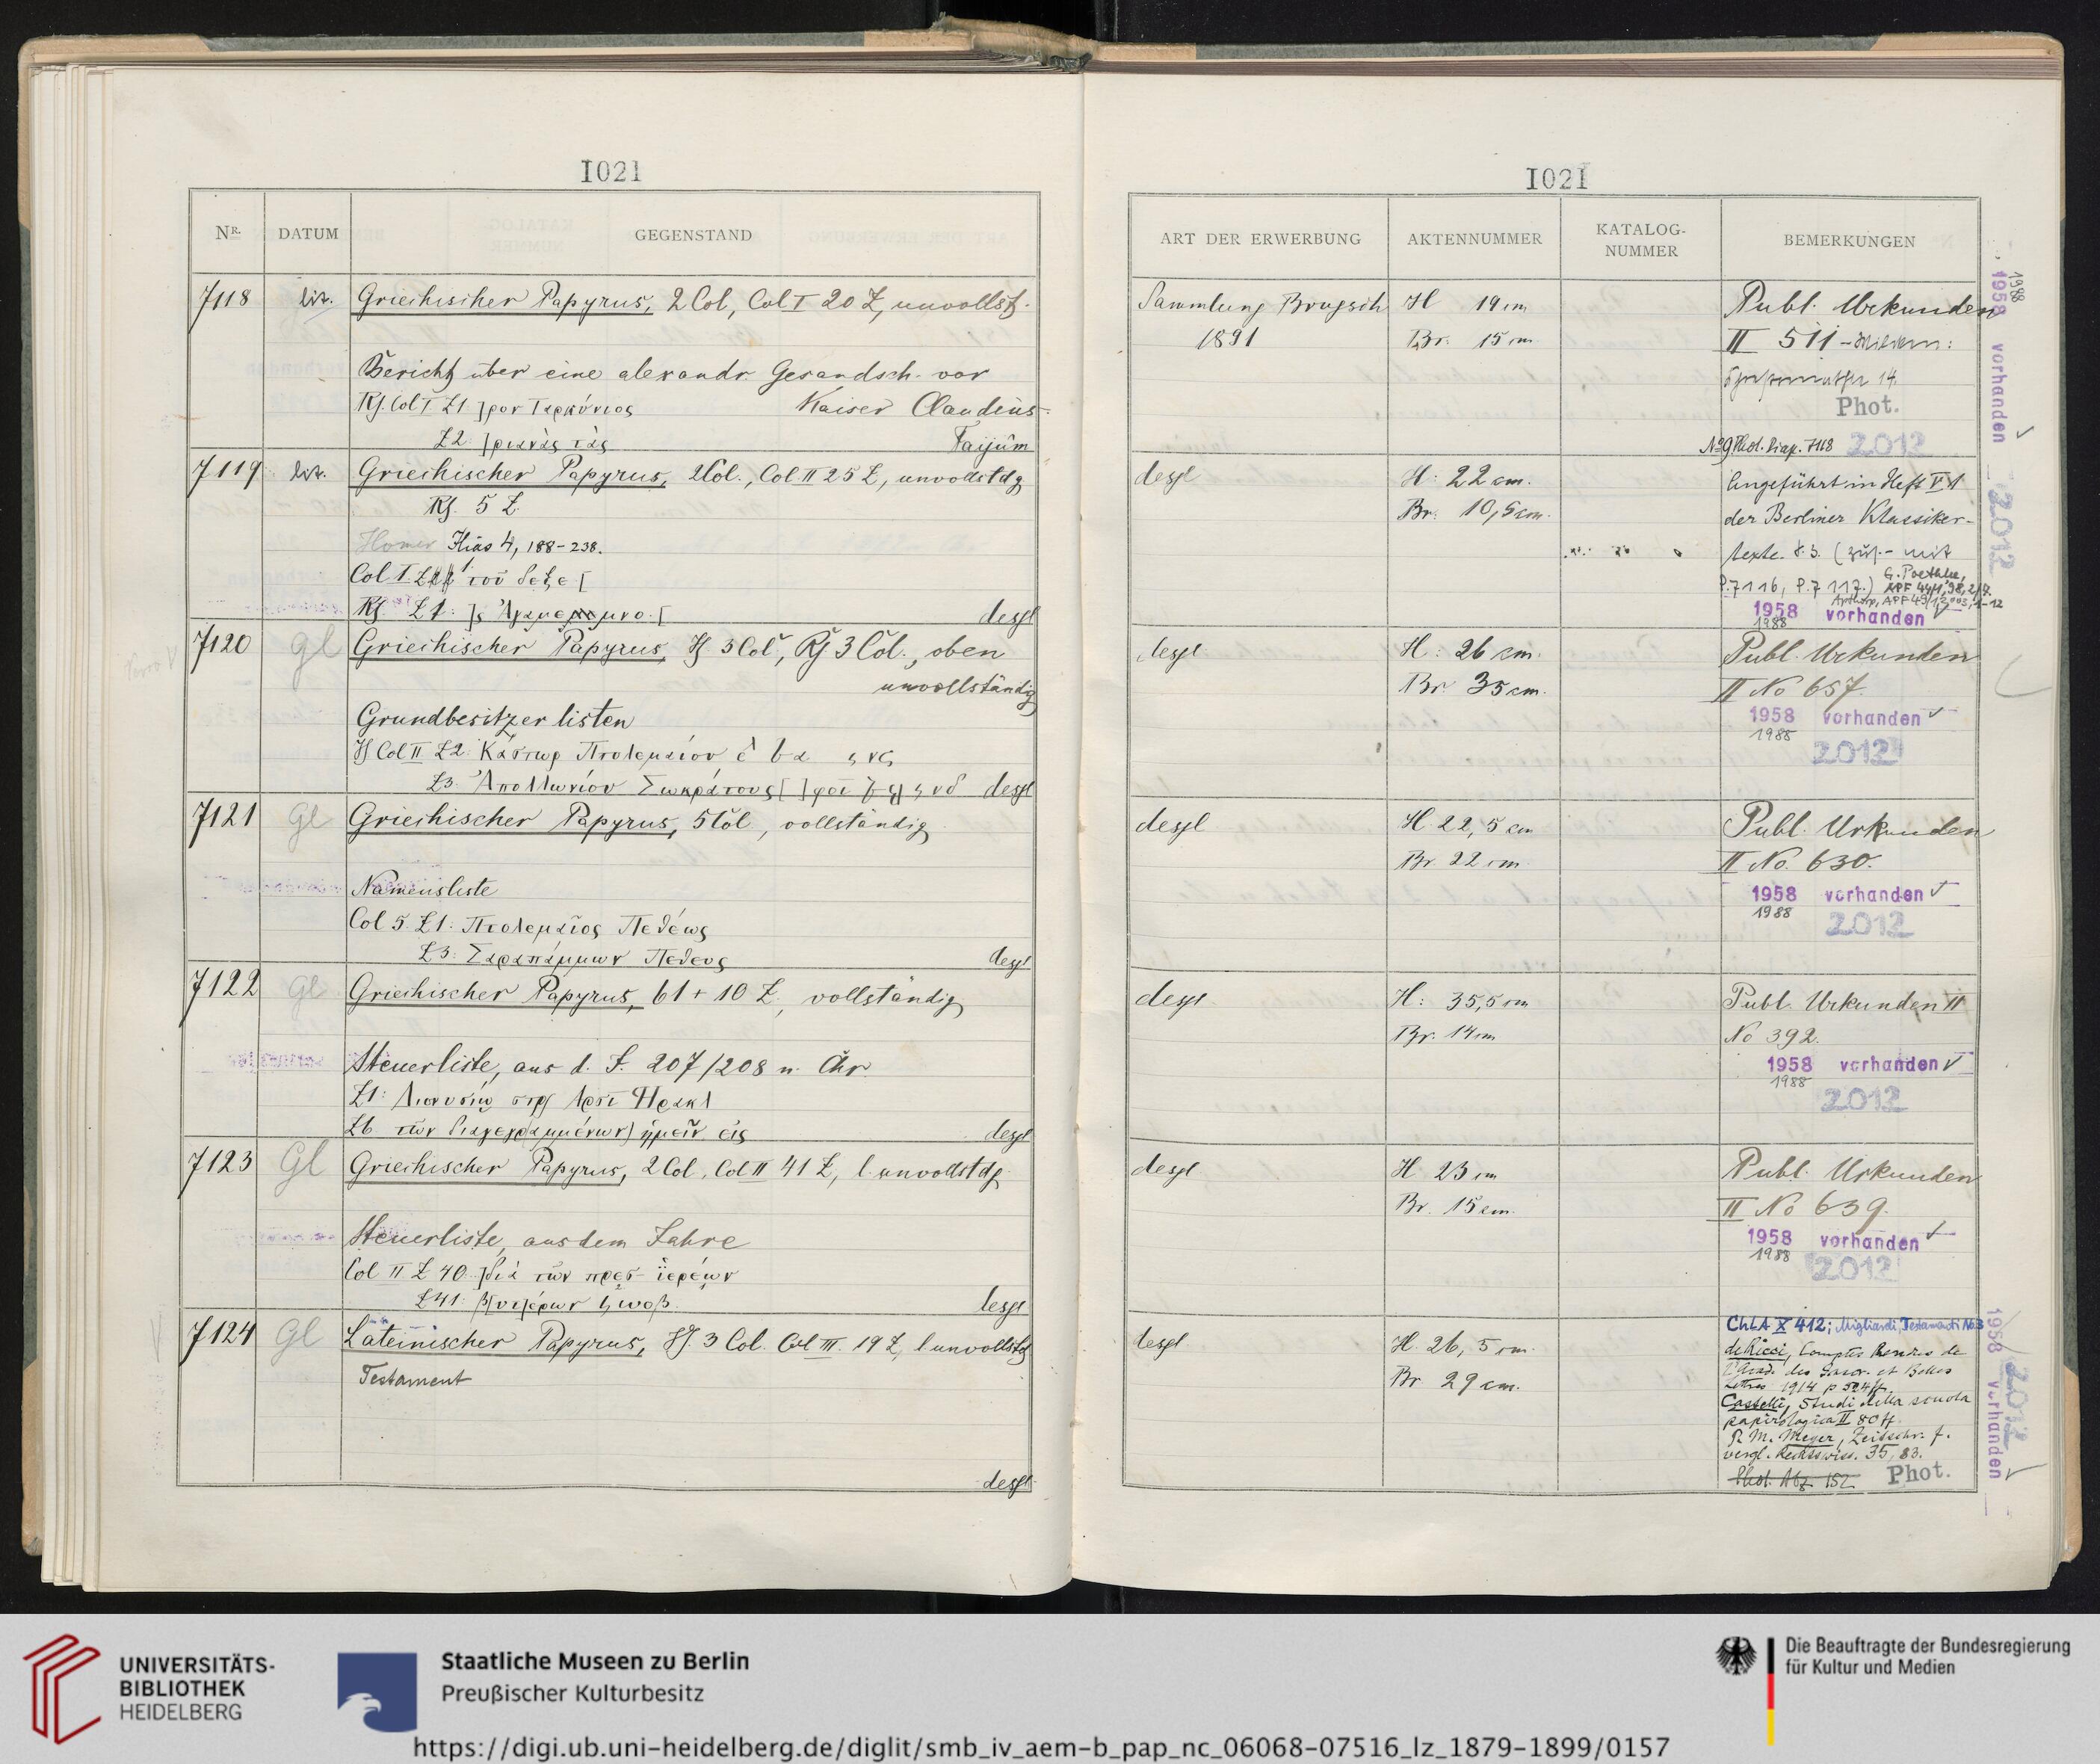 1021
NR. DATUM GEGENSTAND
7118 lit. Griechischer Papyrus, 2 Col, Col. I 20 Z, unvollst.
Bericht über eine alexandr. Gesandsch. vor
Rs. Col I Z1 ]ρον Ταρκύνιος Kaiser Claudius
Z2. Faijûm
7119 lit. Griechischer Papyrus, 2 Col., Col. II 25 Z, unvollstdg
Rs. 5 Z.
Homer Ilias 4, 188-238.
Col I. τοῦ δεξε[
Rs. Z1: desgl
7120 Gl Griechischer Papyrus, Hs 3 Col, Rs 3 Col., oben
unvollständig
Grundbesitzerlisten
Hs Col II Z2: Κάστωρ Πτολεμαίου
Z3. Ἀπολλωνίου Σωκράτους[ desgl
7121 Gl Griechischer Papyrus, 5 Col, vollständig
Namensliste
Col 5. Z1: Πτολεμαῖος Πεθέως
Z3: Σαραπάμμων Πεθευς desgl
7122 Gl Griechischer Papyrus, 61 + 10 Z., vollständig
Steuerliste, aus d. J. 207/208 n. Chr
Z1: Διονυσίῳ στρ Ἀρσι Ηρακλ
Z6 τῶν διαγεγρ(αμμένων) ἡμεῖν εἰς desgl
7123 Gl Griechischer Papyrus, 2 Col, Col II 41 Z, l. unvollstdg.
Steuerliste, aus dem Jahre
Col II Z 40. ]διὰ τῶν πρεσ- ἱερέων
Z41: desgl
7124 Gl Lateinischer Papyrus, Hs. 3 Col. Col III. 19 Z, l unvollstdg
Testament
desgl
1021
ART DER ERWERBUNG AKTENNUMMER KATALOG-NUMMER BEMERKUNGEN
Sammlung Brugsch H 19 cm Publ. Urkunden
1891 Br. 15 cm II 511 - Wilcken:
14.
Phot.
Phot. Diap. 7118 2012
1988
1958 vorhanden
desgl H: 22 cm. Angeführt in Heft V 1
Br: 10,5 cm. der Berliner Klassiker-
texte. S. 3. (zus.- mit
P. 7116, P. 7117.) G. Poethke,
APF 44/1, 98, 2/7.
APF 49/1, 2003, 1-12
1958 vorhanden
1988
2012
desgl H: 26 cm. Publ. Urkunden
Br. 35 cm. II No 657.
1958 vorhanden
1988
2012
desgl H 22,5 cm Publ. Urkunden
Br. 22 cm II No. 630.
1958 vorhanden
1988
2012
desgl H: 35,5 cm Publ. Urkunden II
Br. 14 cm No 392.
1958 vorhanden
1988
2012
desgl H 23 cm Publ. Urkunden
Br. 15 cm. II No 639.
1958 vorhanden
1988
2012
desgl H. 26,5 cm. ChLA X 412; Migliardi, Testamenti No 3
Br 29 cm. de Ricci, Comptes Rendus de
l'Acad. des Inscr. et Belles
Lettres 1914 p 524 ff.
Castelli, Studi della scuola
papirologica II 80 ff.
P. M. Meyer, Zeitschr. f.
vergl. Rechtswiss. 35, 83.
Phot. Abz. 152 Phot.
1958 vorhanden
2012
UNIVERSITÄTS-
BIBLIOTHEK
HEIDELBERG
Staatliche Museen zu Berlin
Preußischer Kulturbesitz
Die Beauftragte der Bundesregierung
für Kultur und Medien
https://digi.ub.uni-heidelberg.de/diglit/smb_iv_aem-b_pap_nc_06068-07516_lz_1879-1899/0157